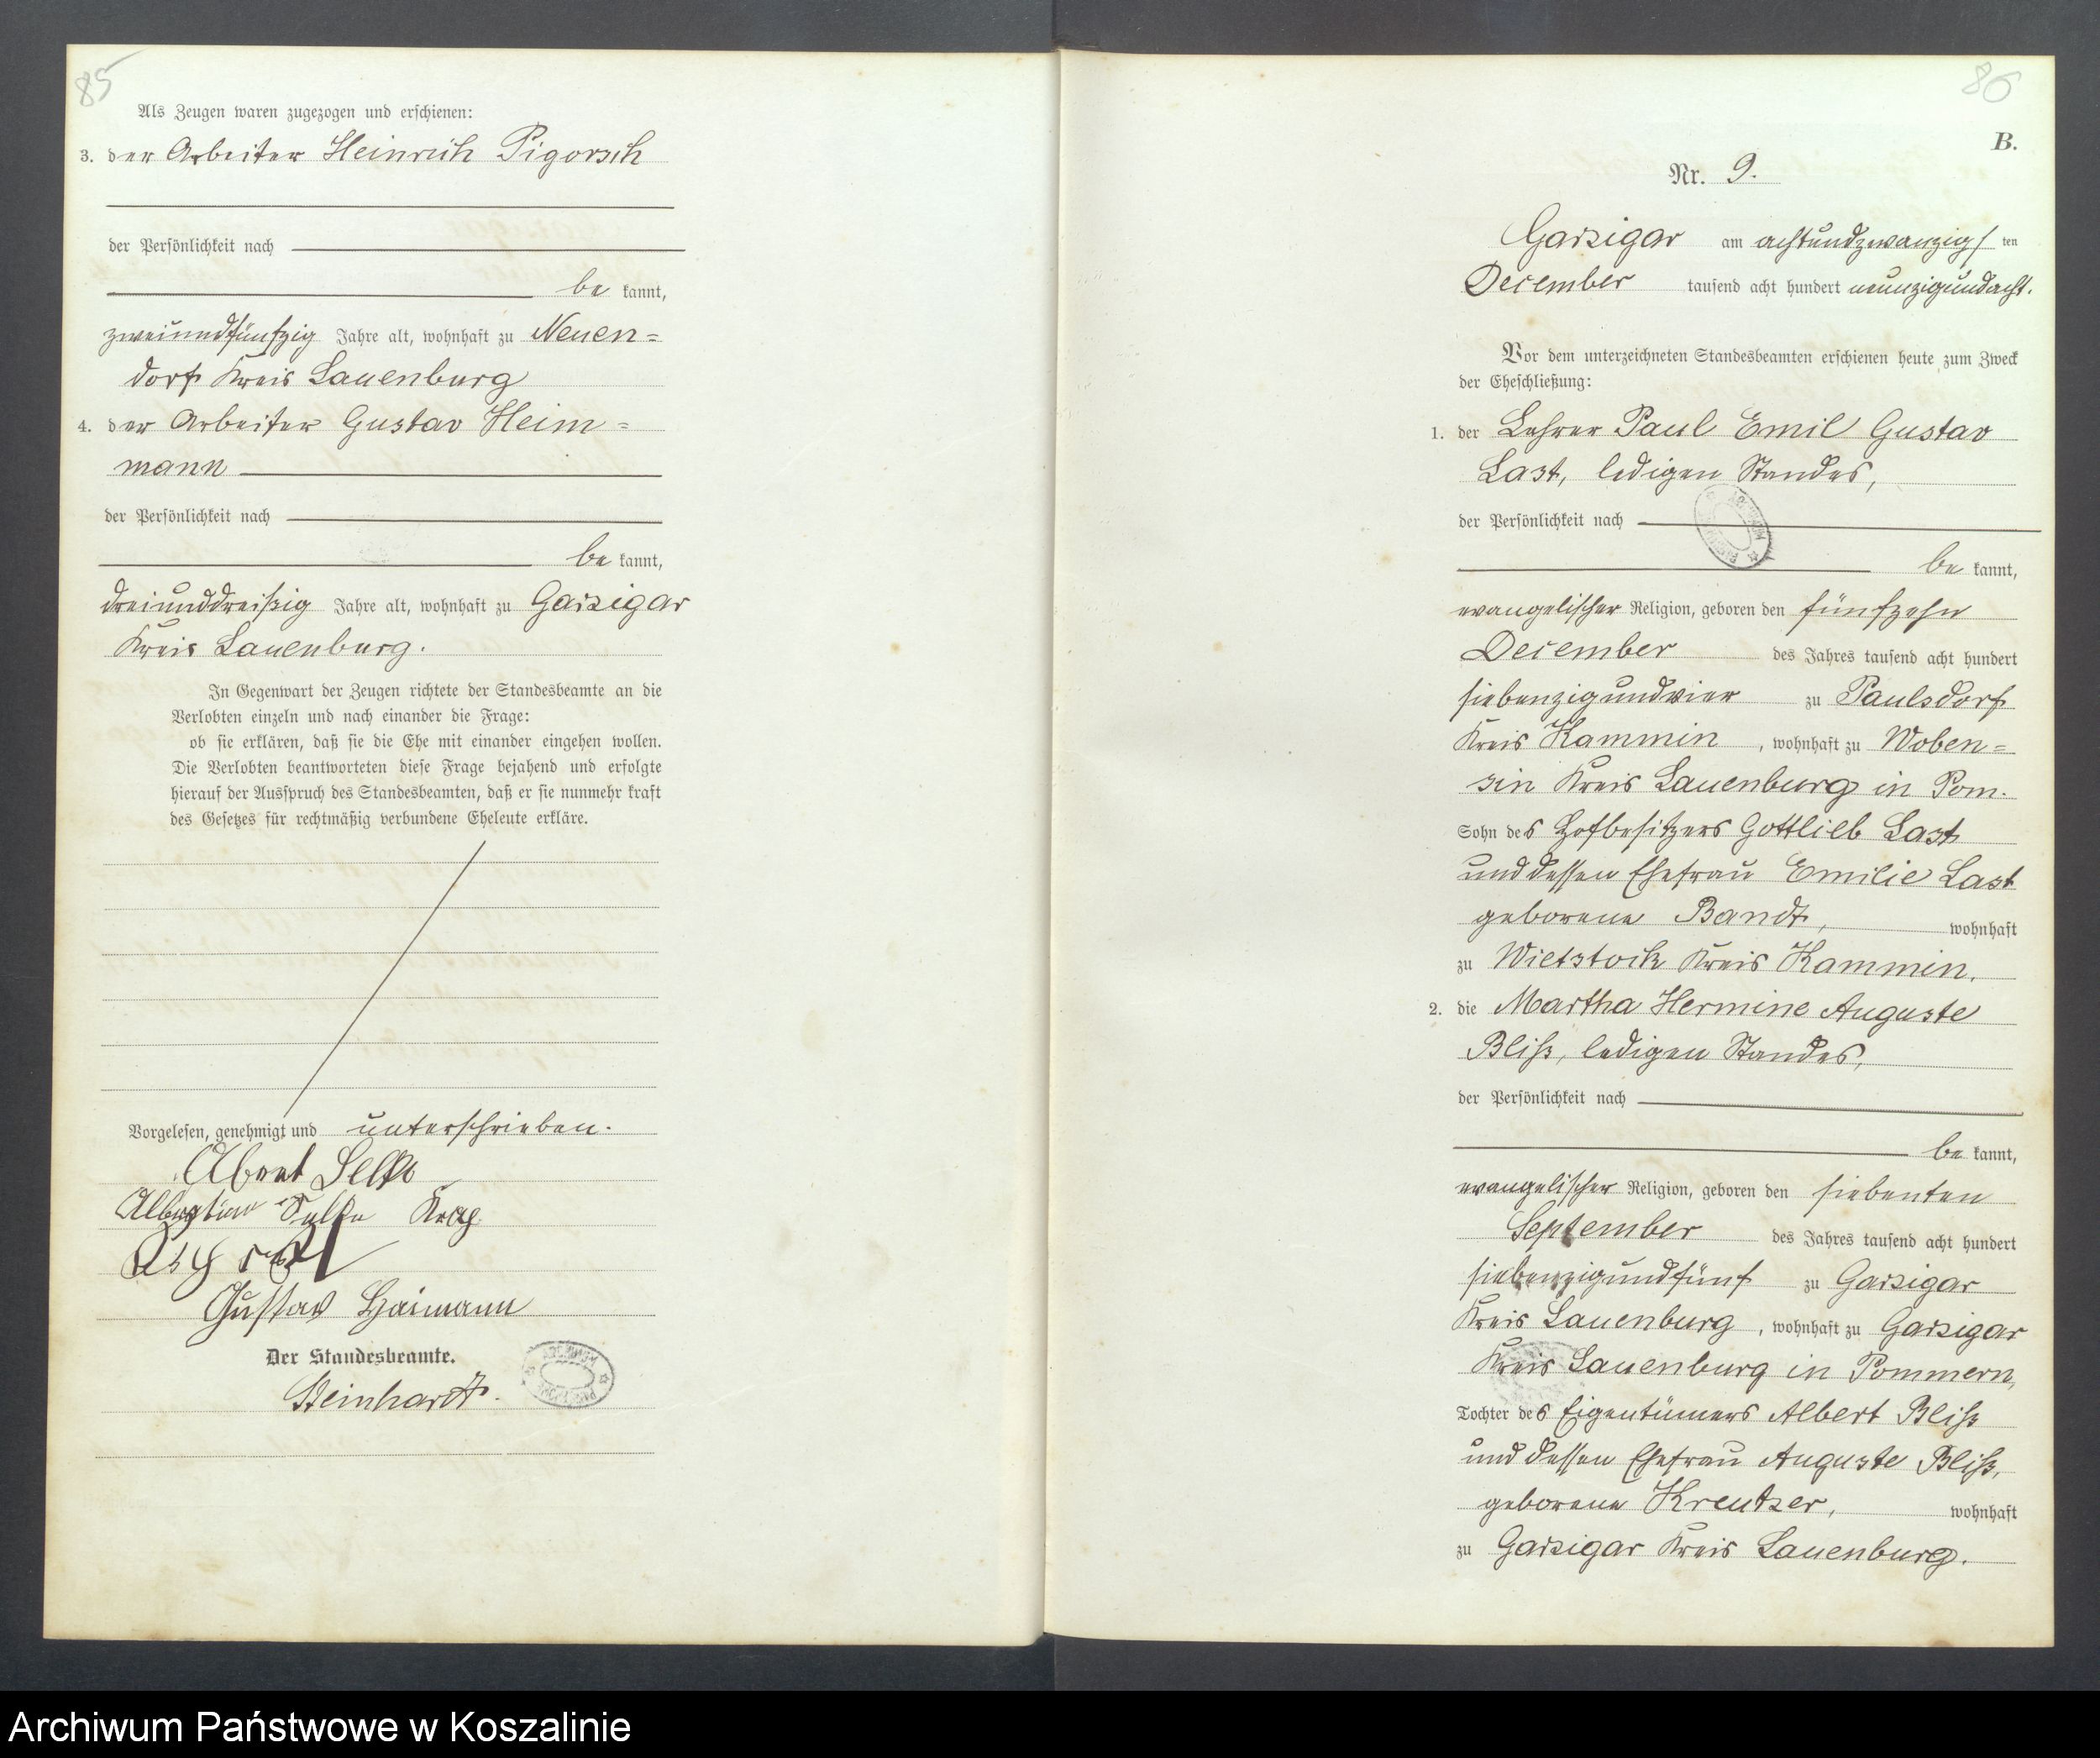 85
Als Zeugen waren zugezogen und erschienen:
3. der Arbeiter Heinrich Pigorsch
der Persönlichkeit nach
be kannt,
zweiundfünfzig Jahre alt, wohnhaft zu Neuen=
dorf Kreis Lauenburg
4. der Arbeiter Gustav Heim=
mann
der Persönlichkeit nach
be kannt,
dreiunddreißig Jahre alt, wohnhaft zu Garzigar
Kreis Lauenburg.
In Gegenwart der Zeugen richtete der Standesbeamte an die
Verlobten einzeln und nach einander die Frage:
ob sie erklären, daß sie die Ehe mit einander eingehen wollen.
Die Verlobten beantworteten diese Frage bejahend und erfolgte
hierauf der Ausspruch des Standesbeamten, daß er sie nunmehr kraft
des Gesetzes für rechtmäßig verbundene Eheleute erkläre.
Vorgelesen, genehmigt und unterschrieben.
Albert Selke
Albertine Selke
Gustav Heimann
Der Standesbeamte.
Steinhardt.
86
B.
Nr. 9.
Garzigar am achtundzwanzigs ten
December tausend acht hundert neunzigundacht.
Vor dem unterzeichneten Standesbeamten erschienen heute zum Zweck
der Eheschließung:
1. der Lehrer Paul Emil Gustav
Last, ledigen Standes,
der Persönlichkeit nach
be kannt,
evangelischer Religion, geboren den fünfzehn
December des Jahres tausend acht hundert
siebenzigundvier zu Paulsdorf
Kreis Kammin, wohnhaft zu Woben=
sin Kreis Lauenburg in Pom.
Sohn des Hofbesitzers Gottlieb Last
und dessen Ehefrau Emilie Last
geborene Bandt, wohnhaft
zu Wietstock Kreis Kammin.
2. die Martha Hermine Auguste
Bliß, ledigen Standes,
der Persönlichkeit nach
be kannt,
evangelischer Religion, geboren den siebenten
September des Jahres tausend acht hundert
siebenzigundfünf zu Garzigar
Kreis Lauenburg, wohnhaft zu Garzigar
Kreis Lauenburg in Pommern,
Tochter des Eigentümers Albert Bliß
und dessen Ehefrau Auguste Bliß,
geborene Kreutzer, wohnhaft
zu Garzigar Kreis Lauenburg.
Archiwum Państwowe w Koszalinie